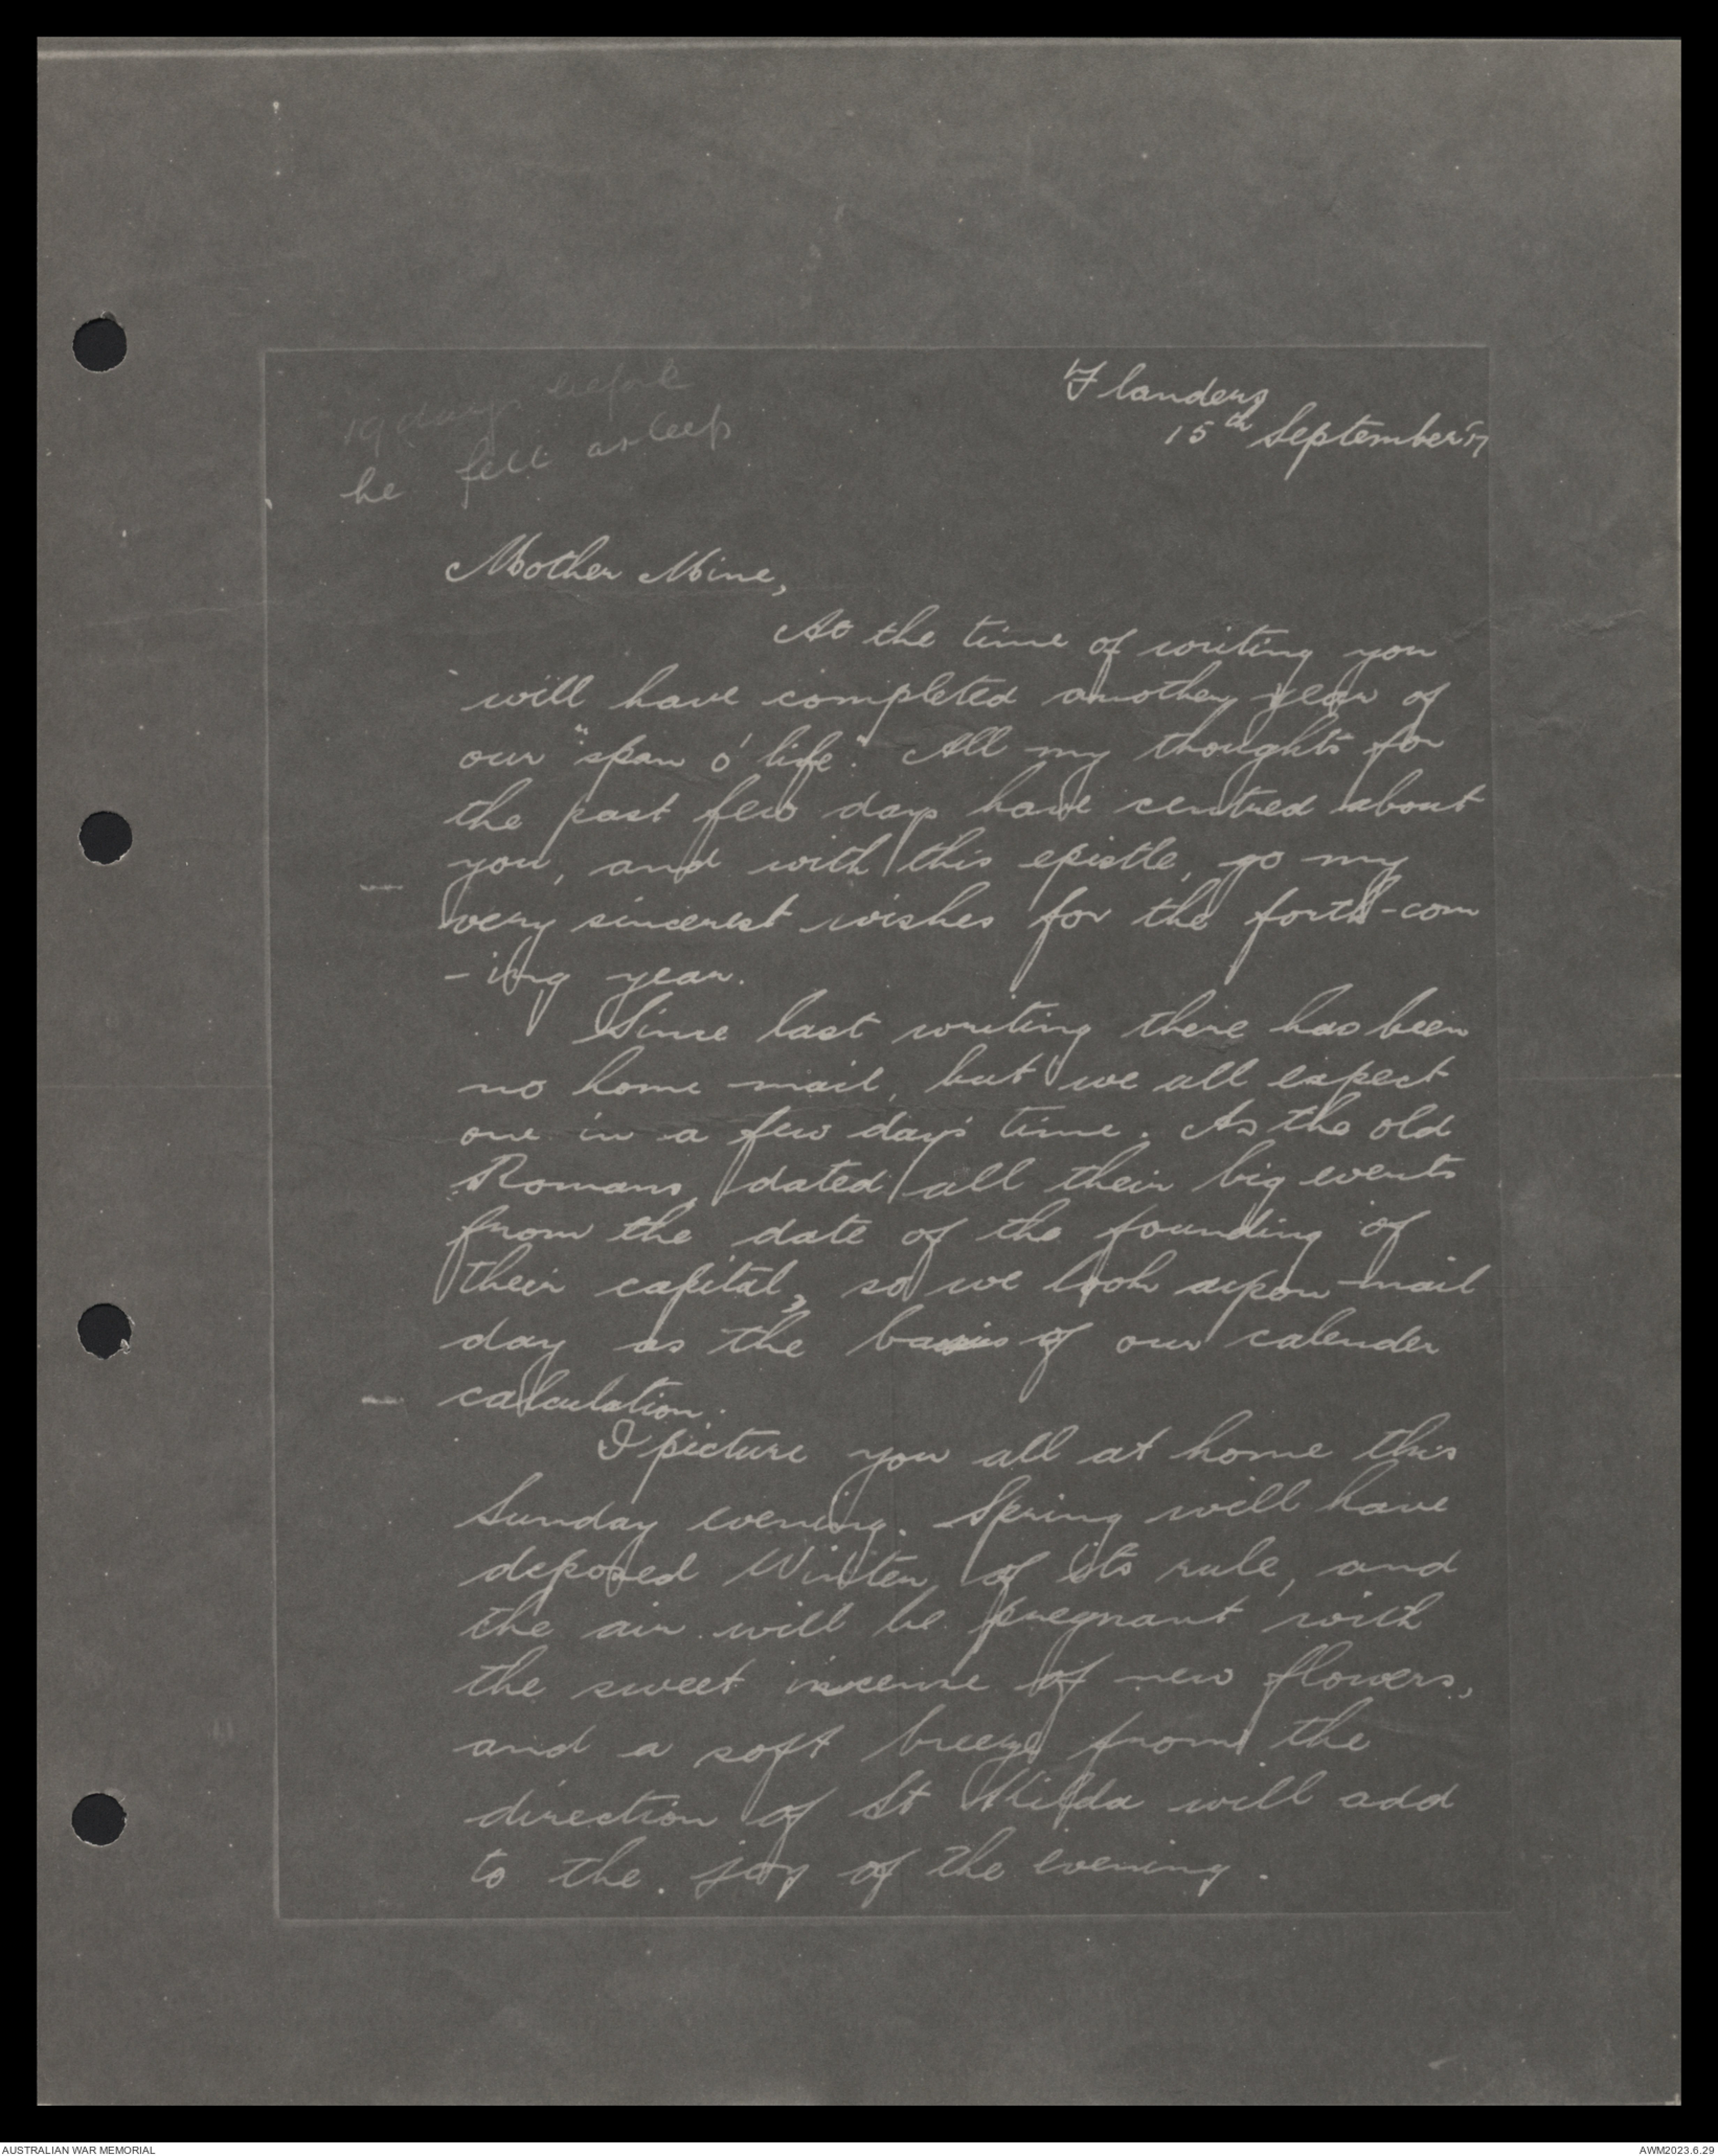 19 days before
he fell asleep
Flanders
15th September '17
Mother Mine,
At the time of writing you
will have completed another year of
our "span o' life". All my thoughts for
the past few days have centred about
you, and with this epistle, go my
very sincerest wishes for the forth-com
-ing year.
Since last writing there has been
no home mail, but we all expect
one in a few days' time. As the old
Romans, dated all their big events
from the date of the founding of
their capital, so we look upon mail
day as the basis of our calender
calculation.
I picture you all at home this
Sunday evening. Spring will have
deposed Winter of its rule, and
the air will be pregnant with
the sweet incense of new flowers,
and a soft breeze from the
direction of St Kilda will add
to the joy of the evening.
AUSTRALIAN WAR MEMORIAL
AWM2023.6.29